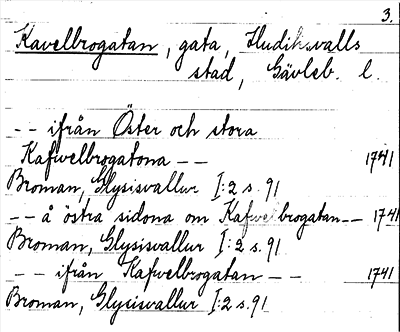 3.
Kavelbrogatan, gata, Hudiksvalls
stad, Gävleb. l.
-- ifrån Öster och stora
Kafwelbrogatona -- 1741
Broman, Glysisvallur I:2 s. 91
-- å östra sidona om Kafwelbrogatan -- 1741
Broman, Glysisvallur I:2 s. 91
-- ifrån Kafwelbrogatan -- 1741
Broman, Glysisvallur I:2 s. 91